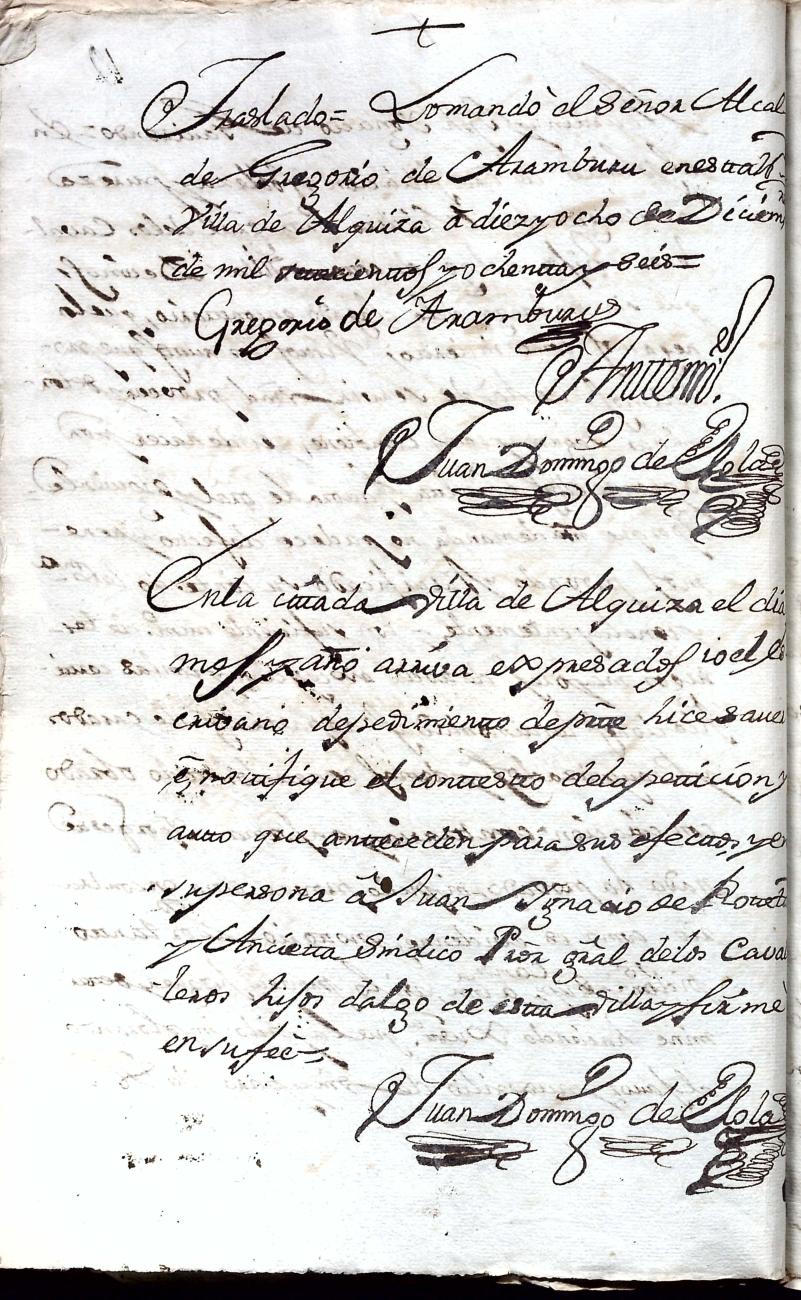 Traslado= Lomandò el Señor Alcal
de Gregorio de Aramburu enestta
Villa de Alquiza â diezyocho de Diciem
de mil settecienttos yochenttay seis=
Gregorio de Aramburu
Anttemi
Juan Domingo de Elola
Enla cittada Villa de Alquiza el dia
mes y año arriva expresados io el Es
crivano depedimientto departte hice saver
é nottifique el conttestto delapetticion y
autto que antteceden para sus efecttos, y en
supersona â Juan Ygnacio de
y Anciettta Sindico Pror gral delos Caval
leros hijos dalgo de estta Villa y firmè
ensufeè=
Juan Domingo de Elola